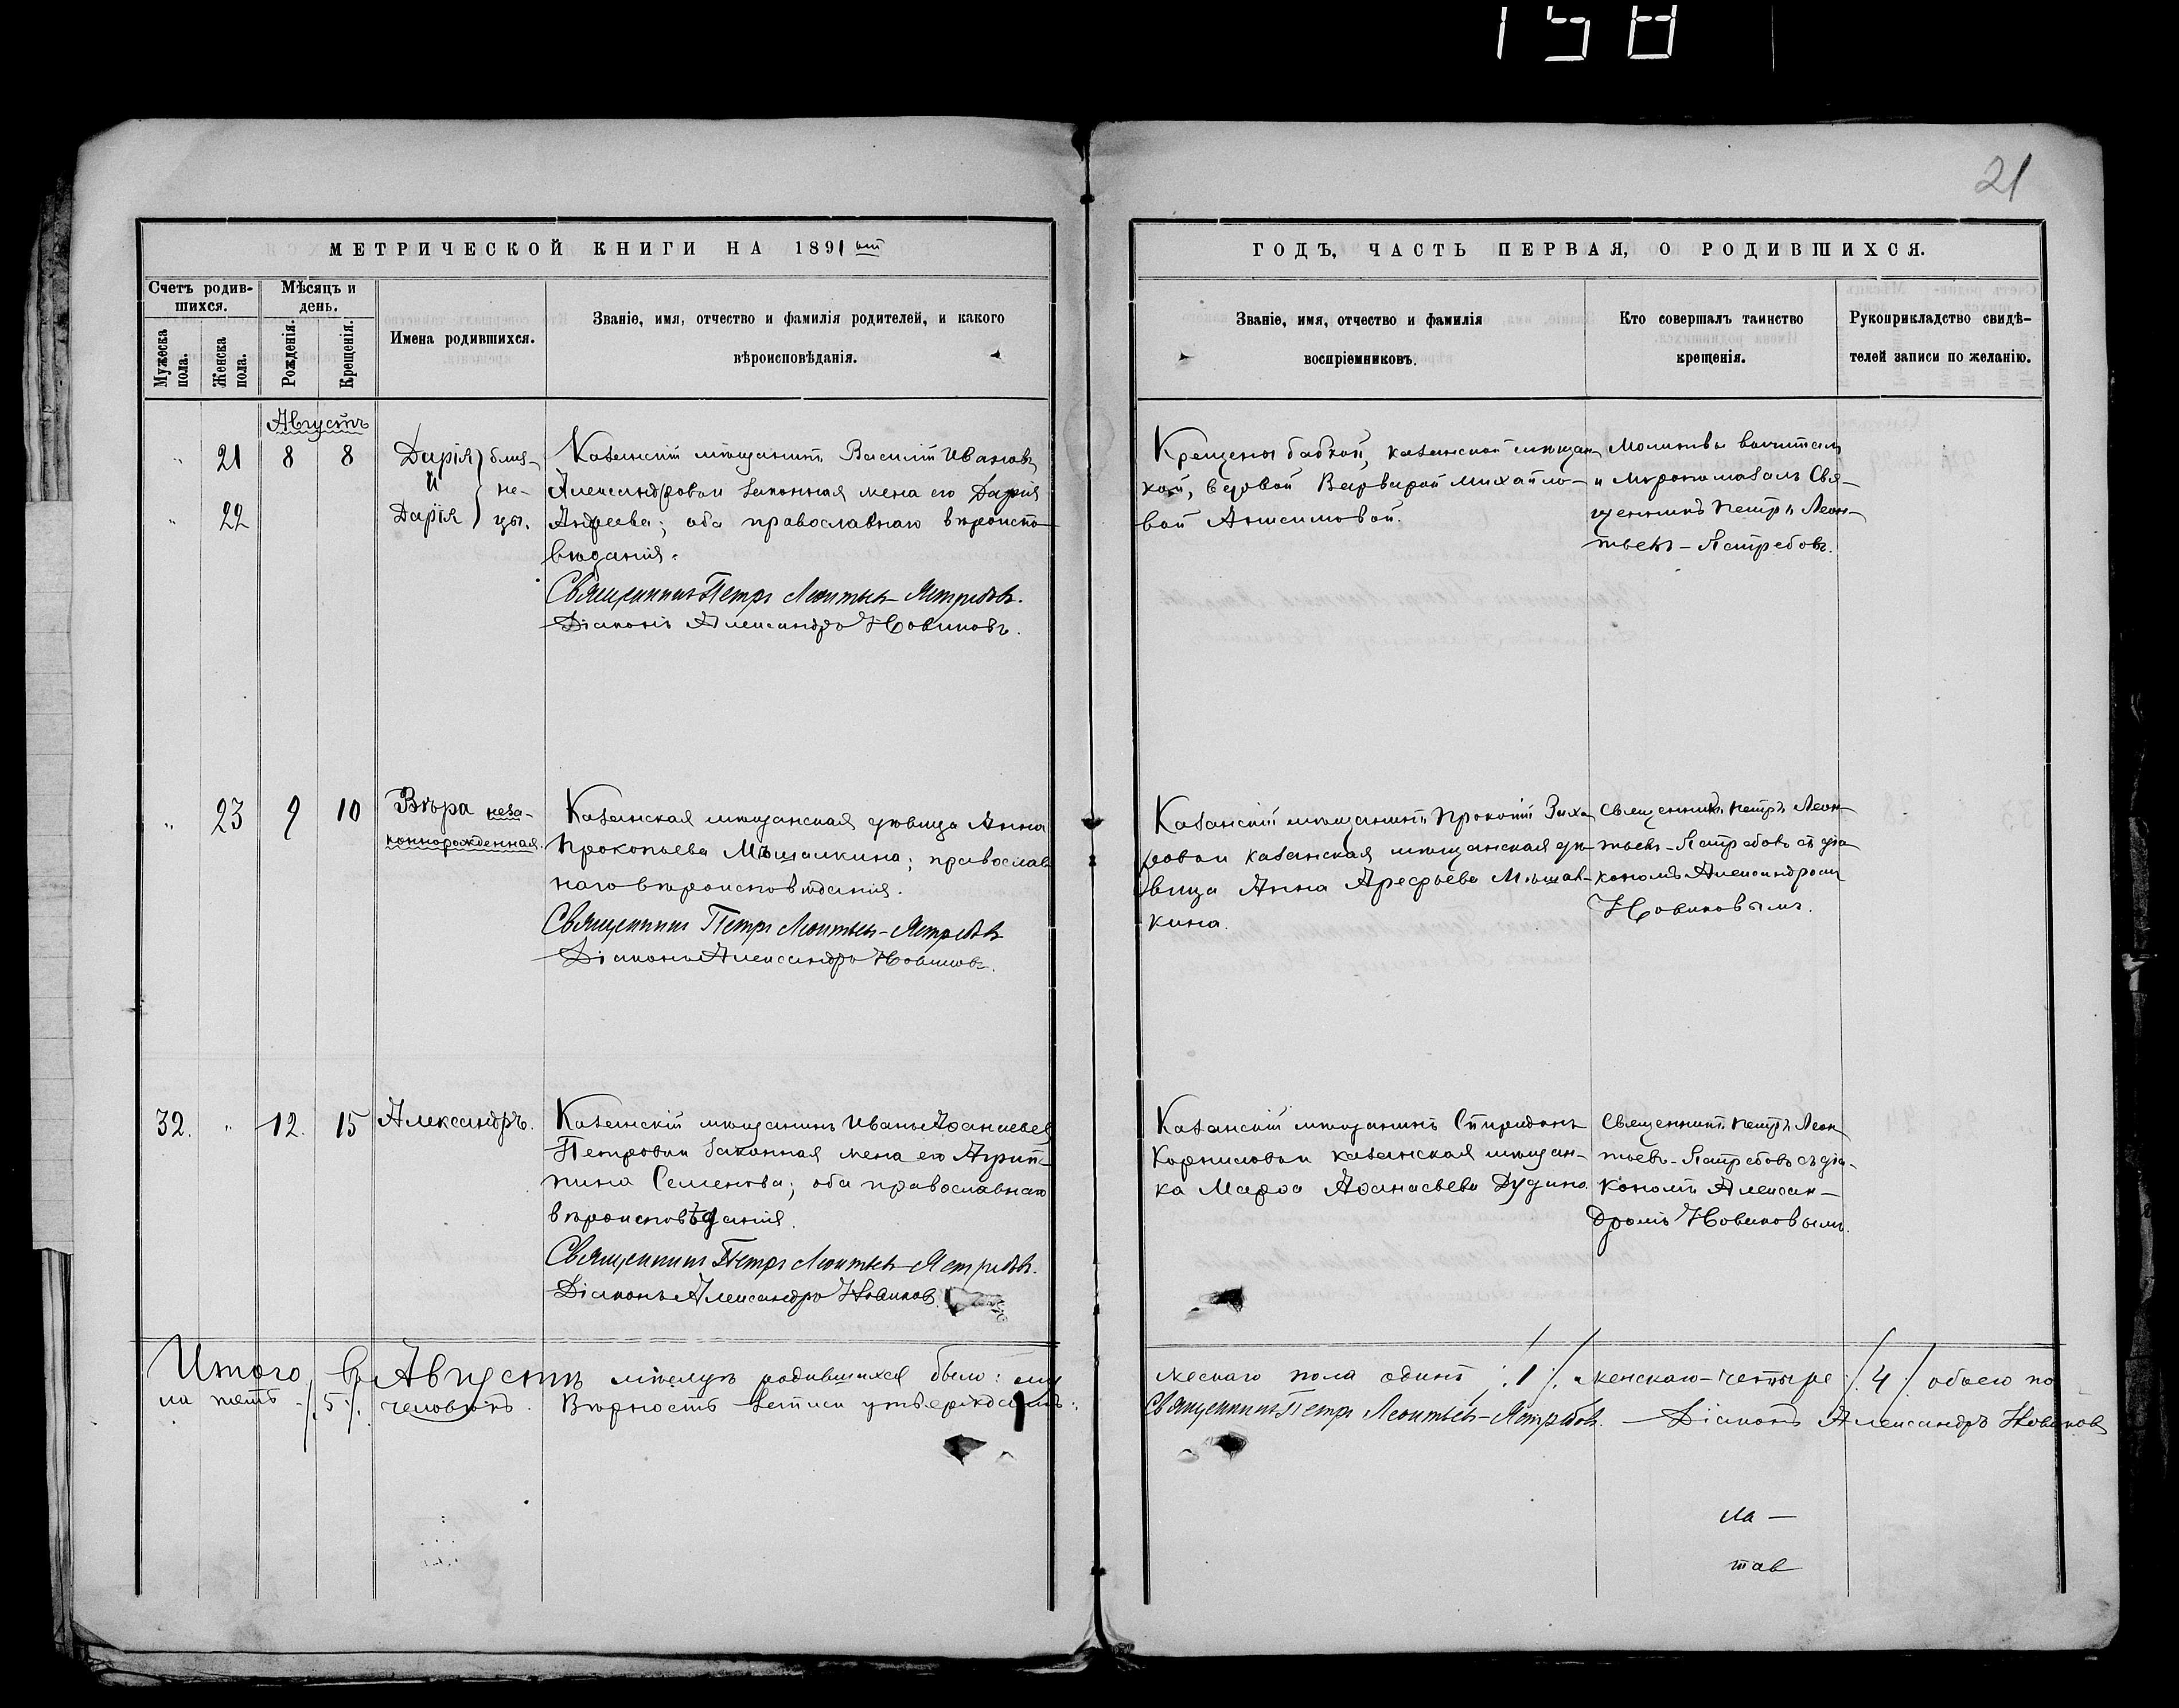 158
21
МЕТРИЧЕСКОЙ КНИГИ НА 1891ый
ГОДЪ, ЧАСТЬ ПЕРВАЯ, О РОДИВШИХСЯ.
Счетъ родив-
шихся.
Мужеска
пола.
Женска
пола.
Мѣсяцъ и
день.
Рожденія.
Крещенія.
Имена родившихся.
Званіе, имя, отчество и фамилія родителей, и какого
вѣроисповѣданія.
Званіе, имя, отчество и фамилія
воспріемниковъ.
Кто совершалъ таинство
крещенія.
Рукоприкладство свидѣ-
телей записи по желанію.
Августъ
" 21 8 8
" 22
Дарія близ-
и не-
Дарія цы.
Казанскій мѣщанинъ Василій Ивановъ
Александровъ законная жена его Дарія
Андреева; оба православнаго вѣроиспо-
вѣданія.
Священникъ Петръ Леонтьевъ-Ястребовъ.
Діаконъ Александръ Новиковъ.
Крещены бабкой, казанской мѣщан-
кой, вдовой Варварой Михайло-
вой Анисимовой.
Молитвы вычиталъ
и мѵропомазалъ Свя-
щенникъ Петръ Леон-
тьевъ-Ястребовъ.
" 23 9 10
Вѣра неза-
коннорожденная.
Казанская мѣщанская дѣвица Анна
Прокопьева Мѣшалкина; православ-
наго вѣроисповѣданія.
Священникъ Петръ Леонтьевъ-Ястребовъ
Діаконъ Александръ Новиковъ.
Казанскій мѣщанинъ Прокопій Заха-
ровъ и казанская мѣщанская дѣ-
вица Анна Арефьева Мѣшал-
кина.
Священникъ Петръ Леон-
тьевъ-Ястребовъ съ діа-
кономъ Александромъ
Новиковымъ.
32. " 12. 15
Александръ.
Казанскій мѣщанинъ Иванъ Аѳанасьевъ
Петровъ и законная жена его Агрип-
пина Семенова; оба православнаго
вѣроисповѣданія.
Священникъ Петръ Леонтьевъ-Ястребовъ.
Діаконъ Александръ Новиковъ.
Казанскій мѣщанинъ Спиридонъ
Корниловъ и казанская мѣщан-
ка Марѳа Аѳанасьева Дудина
Священникъ Петръ Леон-
тьевъ-Ястребовъ съ діа-
кономъ Алексан-
дромъ Новиковымъ.
Итого въ Августѣ мѣсяцѣ родившихся было: му
жескаго пола одинъ /.1./. женскаго-четыре /.4./. обоего по
ла пять /.5./. человѣкъ. Вѣрность записи утверждаемъ:
Священникъ Петръ Леонтьевъ-Ястребовъ. Діаконъ Александръ Новиковъ
ла —
тав